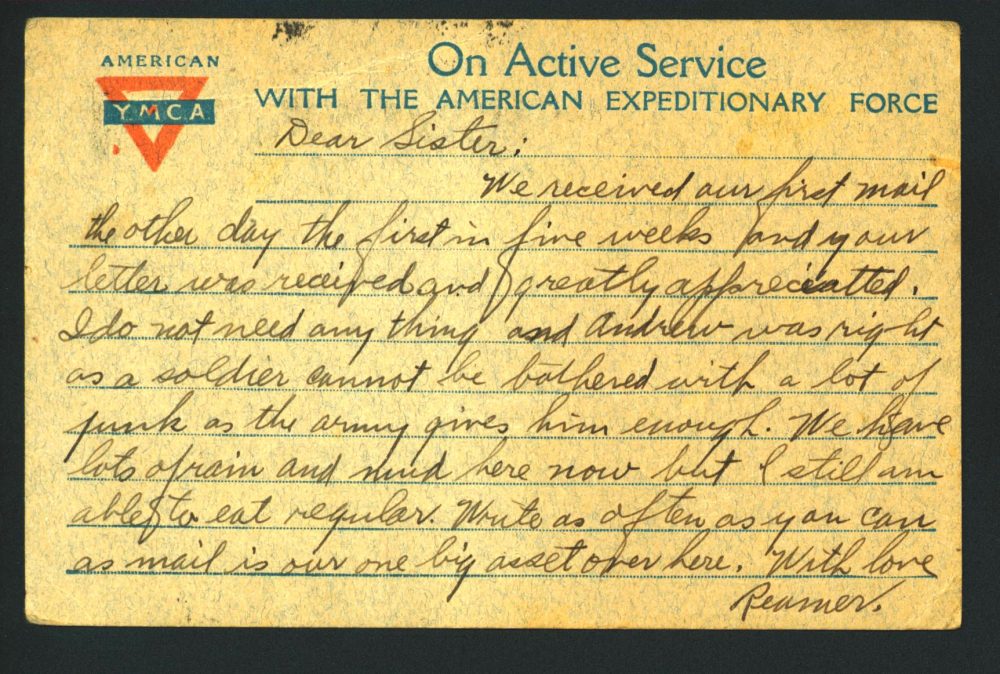 AMERICAN
Y.M.C.A
On Active Service
WITH THE AMERICAN EXPEDITIONARY FORCE
Dear Sister:
We received our first mail
the other day the first in five weeks and your
letter was received and greatly appreciatted.
I do not need any thing and Andrew was right
as a soldier cannot be bothered with a lot of
junk as the army gives him enough. We have
lots of rain and mud here now but I still am
able to eat regular. Write as often as you can
as mail is our one big asset over here. With love
Reamer.